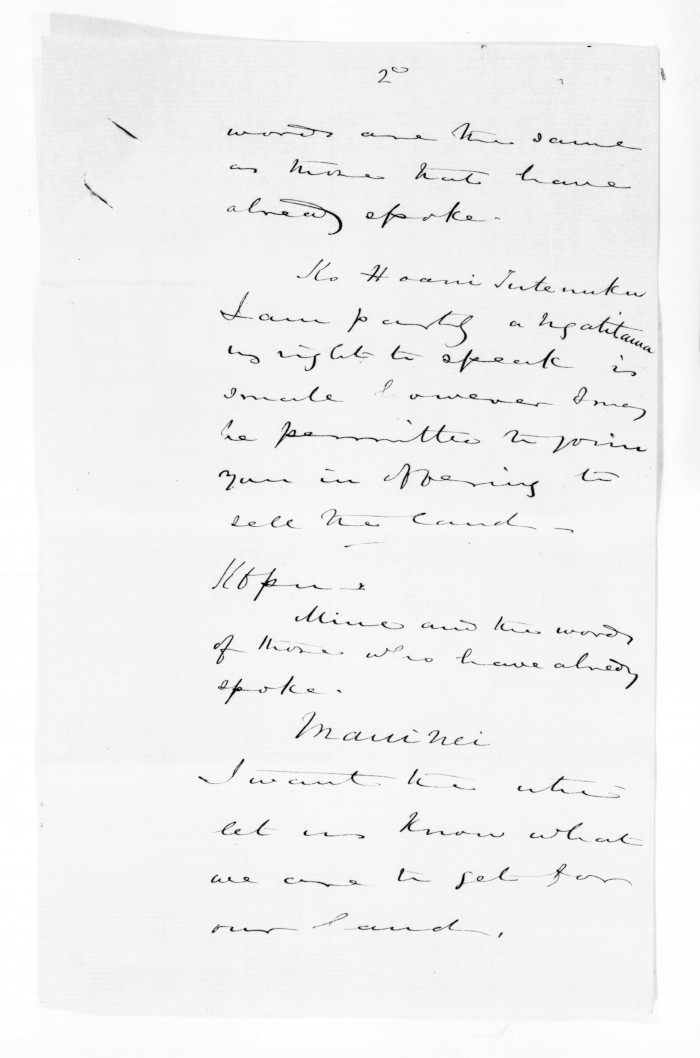 2
words are the same
as those that have
already spoke.
Ko Hoani Tutenuku
I am partly a Ngatitama
my right to speak is
small however I may
be permitted to join
you in offering to
sell the land -
Mine and the words
of those who have already
spoke.
I want the utu
let us know what
we are to get for
our land.